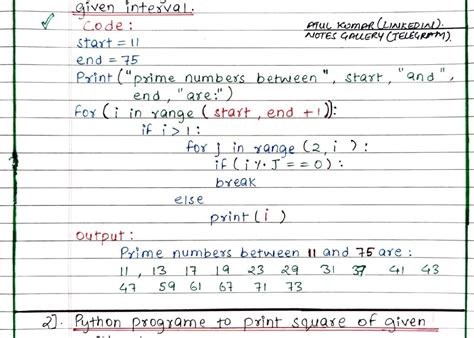 given interval.
Code:
ATUL KUMAR (LINKEDIN).
NOTES GALLERY (TELEGRAM).
start = 11
end = 75
Print ("prime numbers between", start, "and",
end, "are:")
for (i in range (start, end +1)):
if i > 1:
for j in range (2, i):
if (i % J == 0):
break
else
print (i)
output:
Prime numbers between 11 and 75 are:
11, 13 17 19 23 29 31 37 41 43
47 59 61 67 71 73
2]. Python programe to print square of given